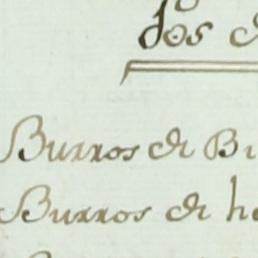 dos
Burros de Bu
Burros de he